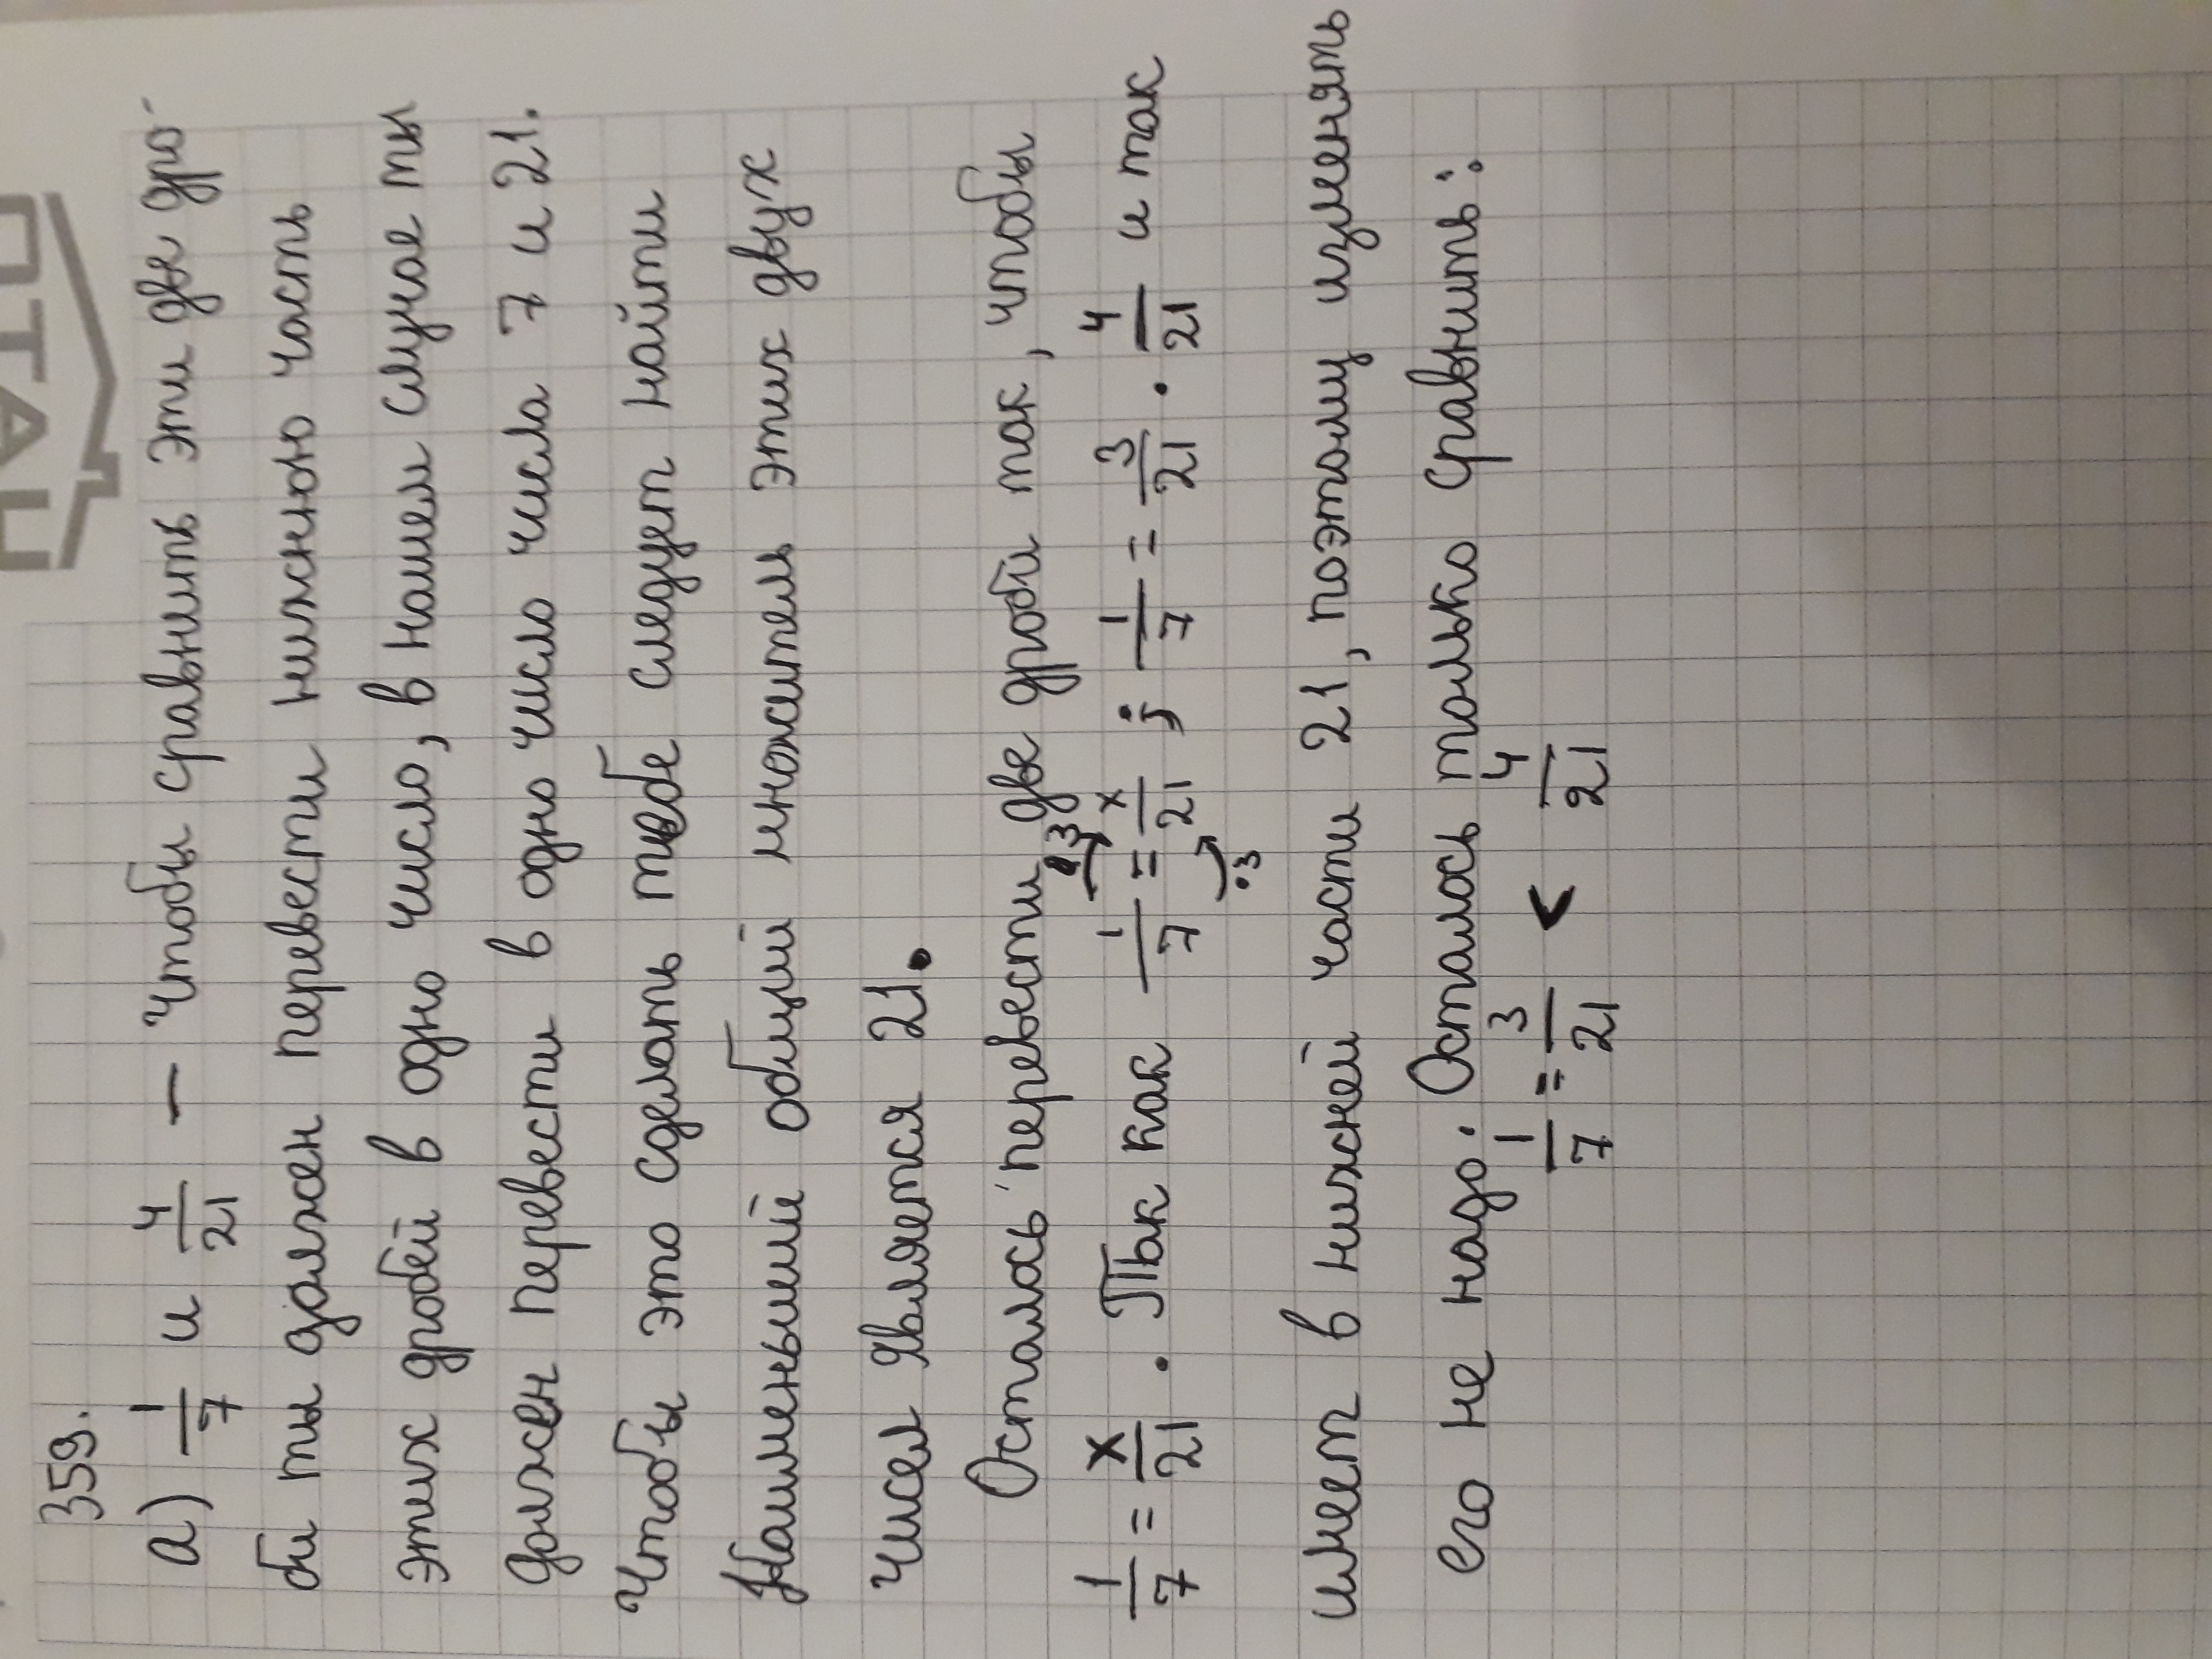 359.
а) 1/7 и 4/21 — Чтобы сравнить эти две дро-
би ты должен перевести нижнюю часть
этих дробей в одно число, в нашем случае ты
должен перевести в одно число числа 7 и 21.
Чтобы это сделать тебе следует найти
Наименьший общий множитель этих двух
чисел является 21.
Осталось перевести две дроби так, чтобы
1/7 = x/21 . Так как 1/7 = x/21 ; 1/7 = 3/21 . 4/21 и так
·3
·3
имеет в нижней части 21, поэтому изменять
его не надо. Осталось только сравнить:
1/7 = 3/21 < 4/21
ПТАН